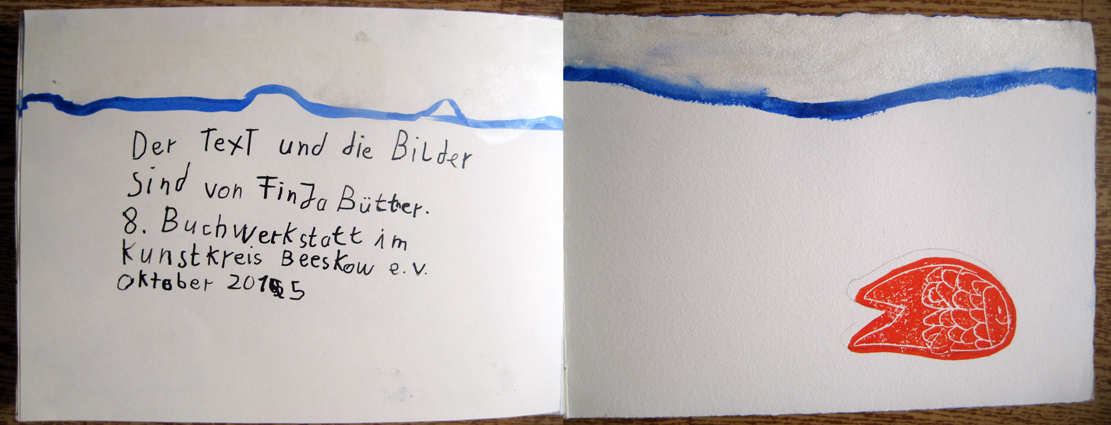 Der Text und die Bilder
Sind von FinJa Bütter.
8. Buchwerkstatt im
Kunstkreis Beeskow e.v.
Oktober 2015